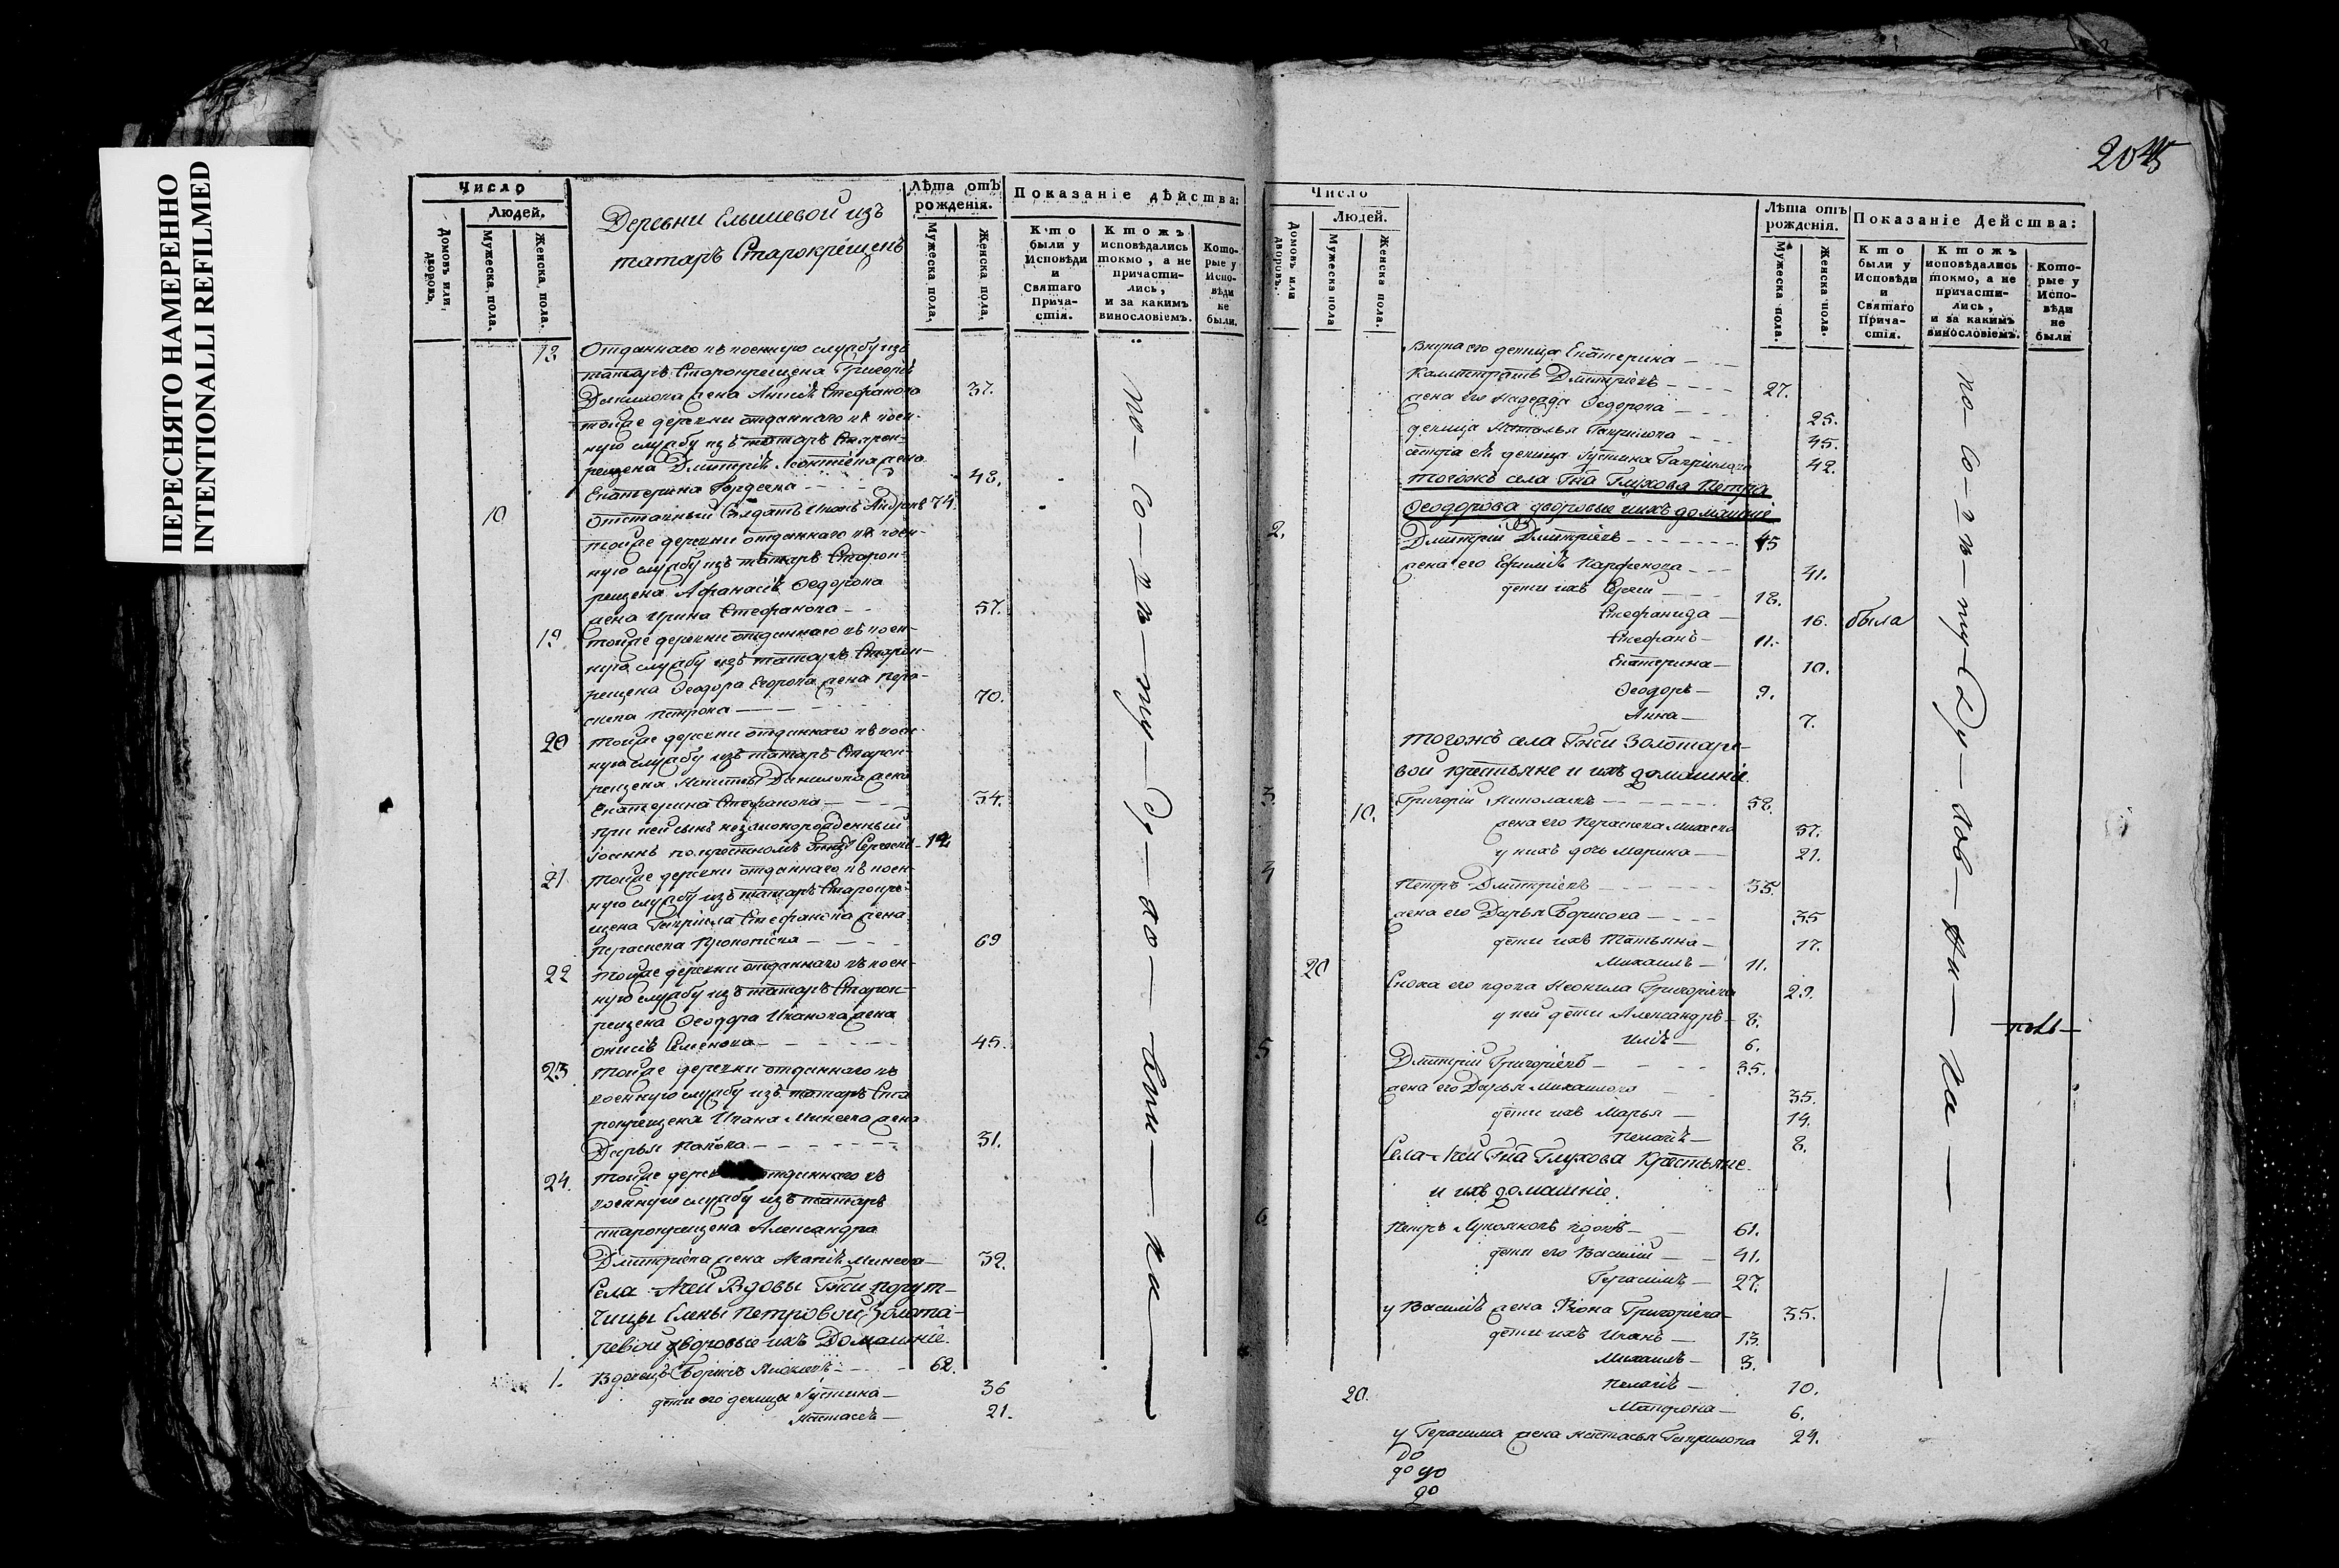 ПЕРЕСНЯТО НАМЕРЕННО
INTENTIONALLI REFILMED
Число
Людей.
Домовъ или дворовъ.
Мужеска пола.
Женска пола.
Деревни Елышевой изъ
татаръ Старокрещенъ
Лѣта отъ рожденія.
Мужеска пола.
Женска пола.
Показаніе дѣйства:
Кто были у Исповѣди и Святаго Причастія.
Ктожъ исповѣдались токмо, а не причастились, и за какимъ винословіемъ.
Которые у Исповѣди не были.
Отданнаго въ военную службу изъ
татаръ Старокрещена Григорія
Данилова жена Анисія Стефанова 37.
тойже деревни отданнаго въ воен-
ную службу изъ татаръ Старок-
рещена Дмитрія Леонтіева жена
Екатерина Гордеева 48.
10 Отставный Солдатъ Иванъ Андреевъ 74.
тойже деревни отданнаго въ воен-
ную службу изъ татаръ Старок-
рещена Афанасія Ѳедорова
жена Ирина Стефанова 57.
19 тойже деревни отданнаго въ воен-
ную службу изъ татаръ Старок-
рещена Ѳеодора Егорова жена Пара-
скева Петрова 70.
20 тойже деревни отданнаго въ воен-
ную службу изъ татаръ Старок-
рещена Никиты Данилова жена
Екатерина Стефанова 34.
при ней сынъ незаконорожденный
Іоаннъ по крестномъ отцѣ Сергѣевъ 14
21 тойже деревни отданнаго въ воен-
ную службу изъ татаръ Старокре-
щена Гавріила Стефанова жена
Параскева Прокопіева 69
22 тойже деревни отданнаго въ воен-
ную службу изъ татаръ Старок-
рещена Ѳеодора Иванова жена
Онисія Семенова 45.
23 тойже деревни отданнаго въ
военную службу изъ татаръ Ста
рокрещена Ивана Минеева жена
Дарья 31.
24. тойже отданнаго въ
военную службу изъ татаръ
старокрещена Александра
Дмитріева жена Агапія Минеева 32.
Села Ачей Вдовы Гжи порут-
чицы Елены Петровой Золота-
ревой дворовые ихъ Домашніе.
1. Вдовецъ Борисъ Яковлевъ 62.
дети его девицы Іустина 36
Настасія 21.
2045
Число
Людей.
Домовъ или дворовъ.
Мужеска пола
Женска пола.
Лѣта отъ рожденія.
Мужеска пола.
Женска пола.
Показаніе Дейсства:
Кто были у Исповѣди и Святаго Причастія.
Ктожъ исповѣдались токмо, а не причастились, и за какимъ винословіемъ.
Которые у Исповѣди не были
внука его девица Екатерина
Калистратъ Дмитріевъ 27.
жена его Надежда Ѳедорова 25.
девица Наталья Гаврилова 45.
сестра её девица Іустина Гаврилова 42.
тогожъ села Гна Глухова Петра
Ѳеодорова дворовые ихъ домашніе
2. Дмитрій Дмитріевъ 45
жена его Ефимія Парфенова 41.
дети ихъ Сергей 18.
Стефанида 16. была
Стефанъ 11.
Екатерина 10.
Ѳеодоръ 9.
Анна 7.
тогожъ села Гжи Золотаре-
вой крестьяне и ихъ домашніе.
3. 10. Григорій Николаевъ 58.
жена его Параскева Михеева 57.
у нихъ дочь Марина 21.
4 Петръ Дмитріевъ 35.
жена его Дарья Борисова 35
дети ихъ Татьяна 17.
20 Михаилъ 11.
Сноха его вдова Неонила Григоріева 29.
у ней дети Александръ 8.
Илія 6.
5 Дмитрій Григоріевъ 35.
жена его Дарья Михаилова 35.
дети ихъ Марья 14.
Пелагія 8.
Села Ачей Гна Глухова Крестьяне
и ихъ домашніе.
6 Петръ Лукояновъ вдовъ 61.
дети его Василій 41.
Герасимъ 27.
у Василія жена Григоріева 35.
дети ихъ Иванъ 13.
Михаилъ 3.
20. Пелагія 10.
Матрона 6.
у Герасима жена Настасья Гаврилова 24.
до
до до
до